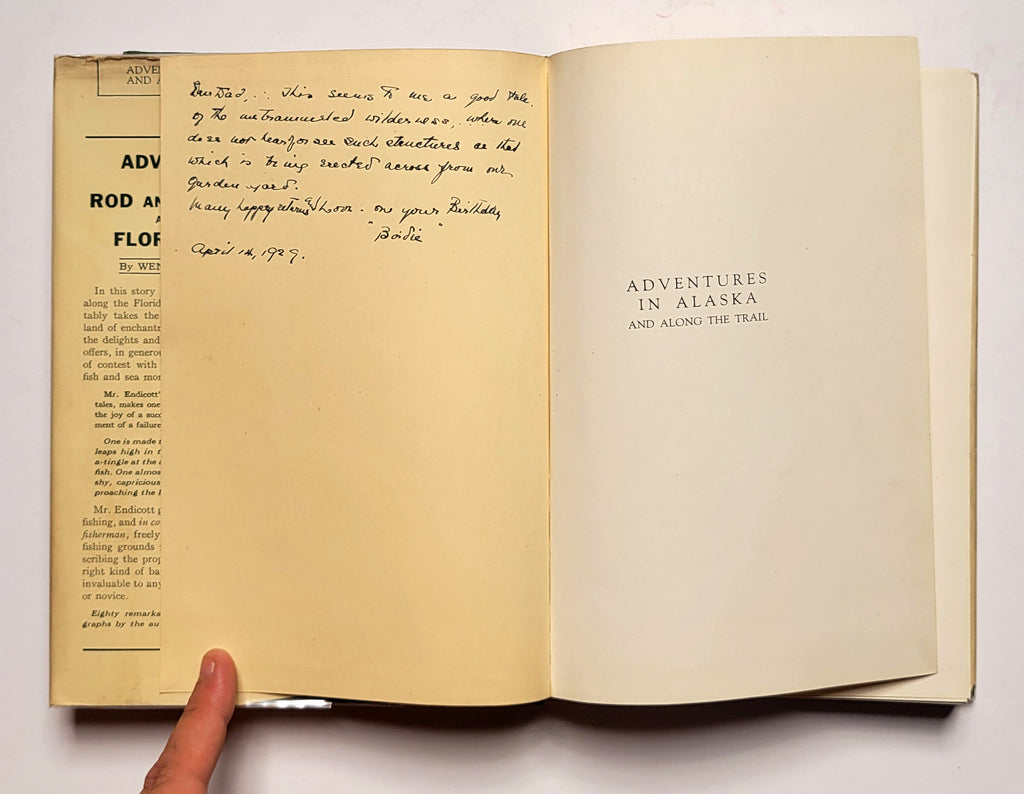 ADVE
AND A
ADV
ROD AN
A
FLOR
By WEN
In this story
along the Florid
tably takes the
land of enchantr
the delights and
offers, in genero
of contest with
fish and sea mor
Mr. Endicott'
tales, makes one
the joy of a suc
ment of a failure
One is made t
leaps high in t
a-tingle at the a
fish. One almos
shy, capricious
proaching the l
Mr. Endicott g
fishing, and in co
fisherman, freely
fishing grounds
scribing the prop
right kind of ba
invaluable to any
or novice.
Eighty remarka
graphs by the au
Dear Dad, ∴ This seems to me a good tale
of the untrammeled wilderness, where one
does not hear for see such structures as that
which is being erected across from our
garden yard.
Many happy returns and Love - on your Birthday
"Boidie"
April 1st, 1929.
ADVENTURES
IN ALASKA
AND ALONG THE TRAIL